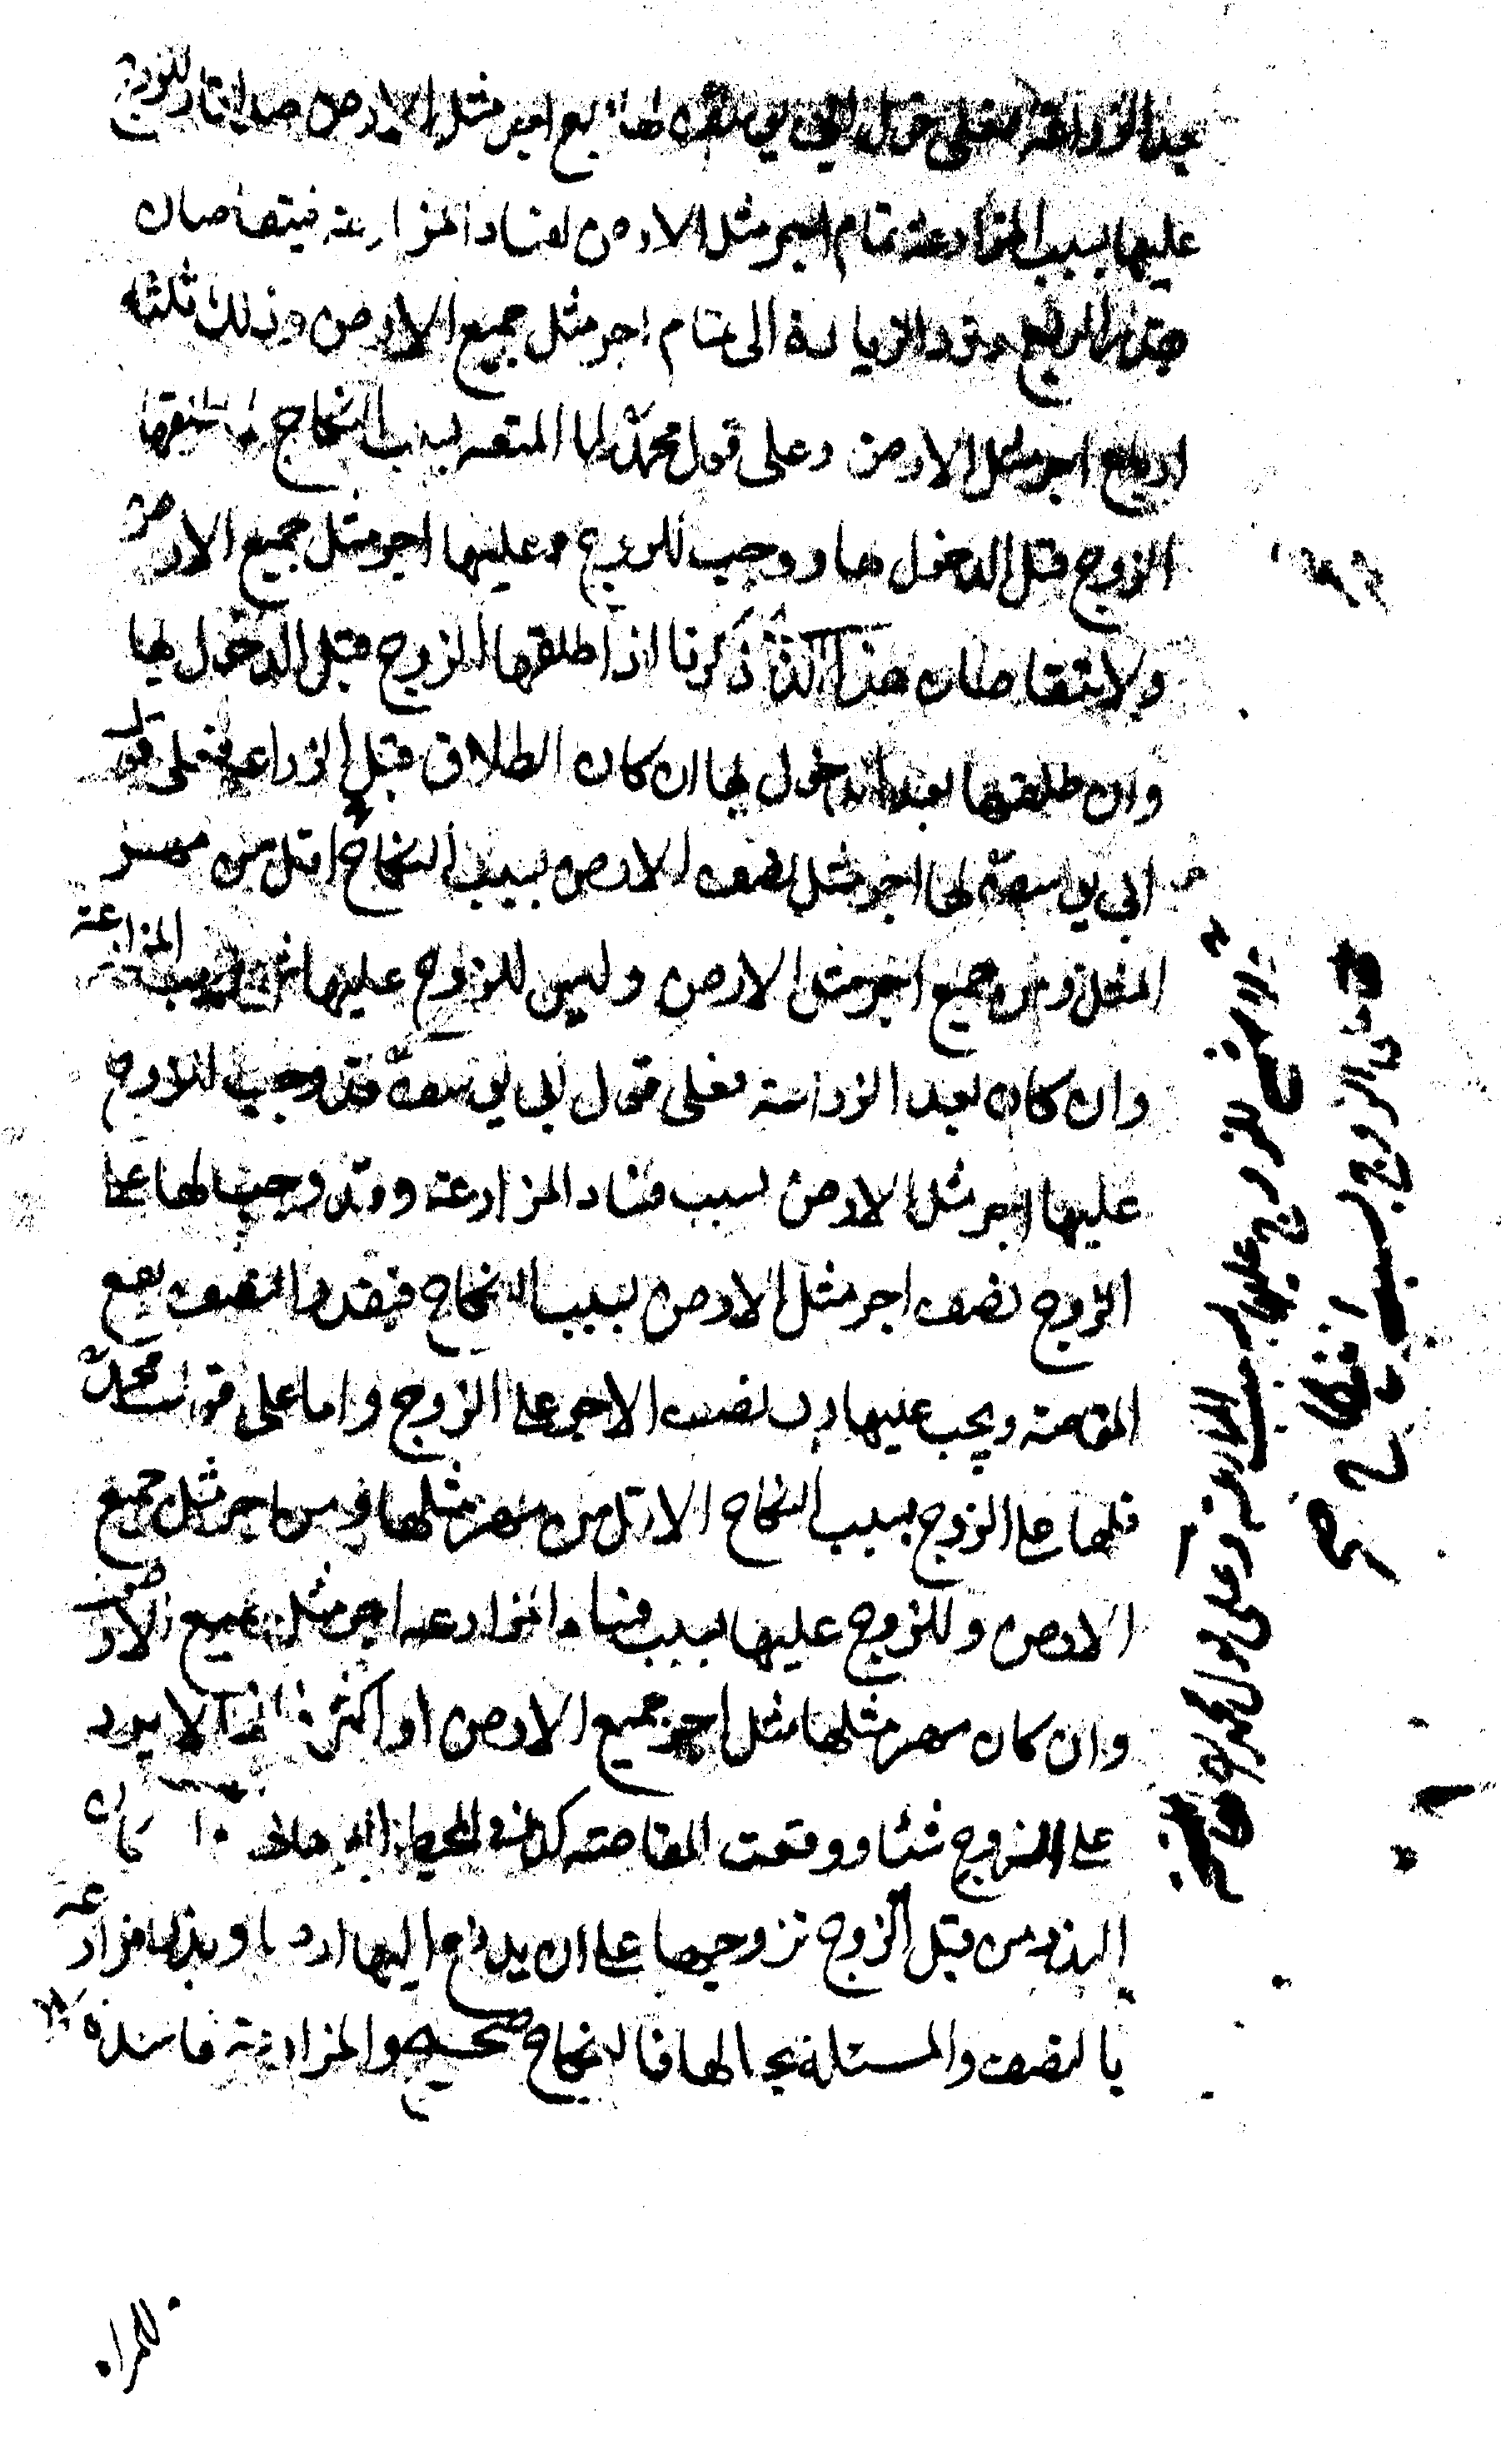 بعد الزراعة فعلى قول ابي يوسف لها ربع اجر مثل الارض على الزوج وللزوج
عليها بسبب المزارعة تمام اجر مثل الارض لفساد المزارعة فيتقاصان
بقدر الربع وترد الزيادة الى تمام اجر مثل جميع الارض وذلك ثلثة
ارباع اجر مثل الارض وعلى قول محمد لها المتعة بسبب النكاح لما طلقها
الزوج قبل الدخول بها ووجب للزوج عليها اجر مثل جميع الارض
ولا يتقاصان هذا الذي ذكرنا اذا طلقها الزوج قبل الدخول بها
وان طلقها بعد الدخول بها ان كان الطلاق قبل الزراعة فعلى قول
ابي يوسف لها اجر مثل نصف الارض بسبب النكاح اقل من مهر
المثل ومن جميع اجر مثل الارض وليس للزوج عليها شيء بسبب المزارعة
وان كان بعد الزراعة فعلى قول ابي يوسف فقد وجب للزوج
عليها اجر مثل الارض بسبب فساد المزارعة وقد وجب لها على
الزوج نصف اجر مثل الارض بسبب النكاح فبقدر النصف يقع
المقاصة ويجب عليها رد نصف الاجر على الزوج واما على قول محمد
فلها على الزوج بسبب النكاح الاقل من مهر مثلها ومن اجر مثل جميع
الارض وللزوج عليها بسبب فساد المزارعة اجر مثل جميع الارض
وان كان مهر مثلها مثل اجر جميع الارض او اكثر لا يرد
على الزوج شيئا ووقعت المقاصة كذا في المحيط وان كان
البذر من قبل الزوج تزوجها على ان يدفع اليها ارضا وبذرا مزارعة
بالنصف والمسئلة بحالها فالنكاح صحيح والمزارعة فاسدة
للزوج عليها بسبب المزارعة وعلى قول محمد
على الزوج بسبب النكاح
للمراة